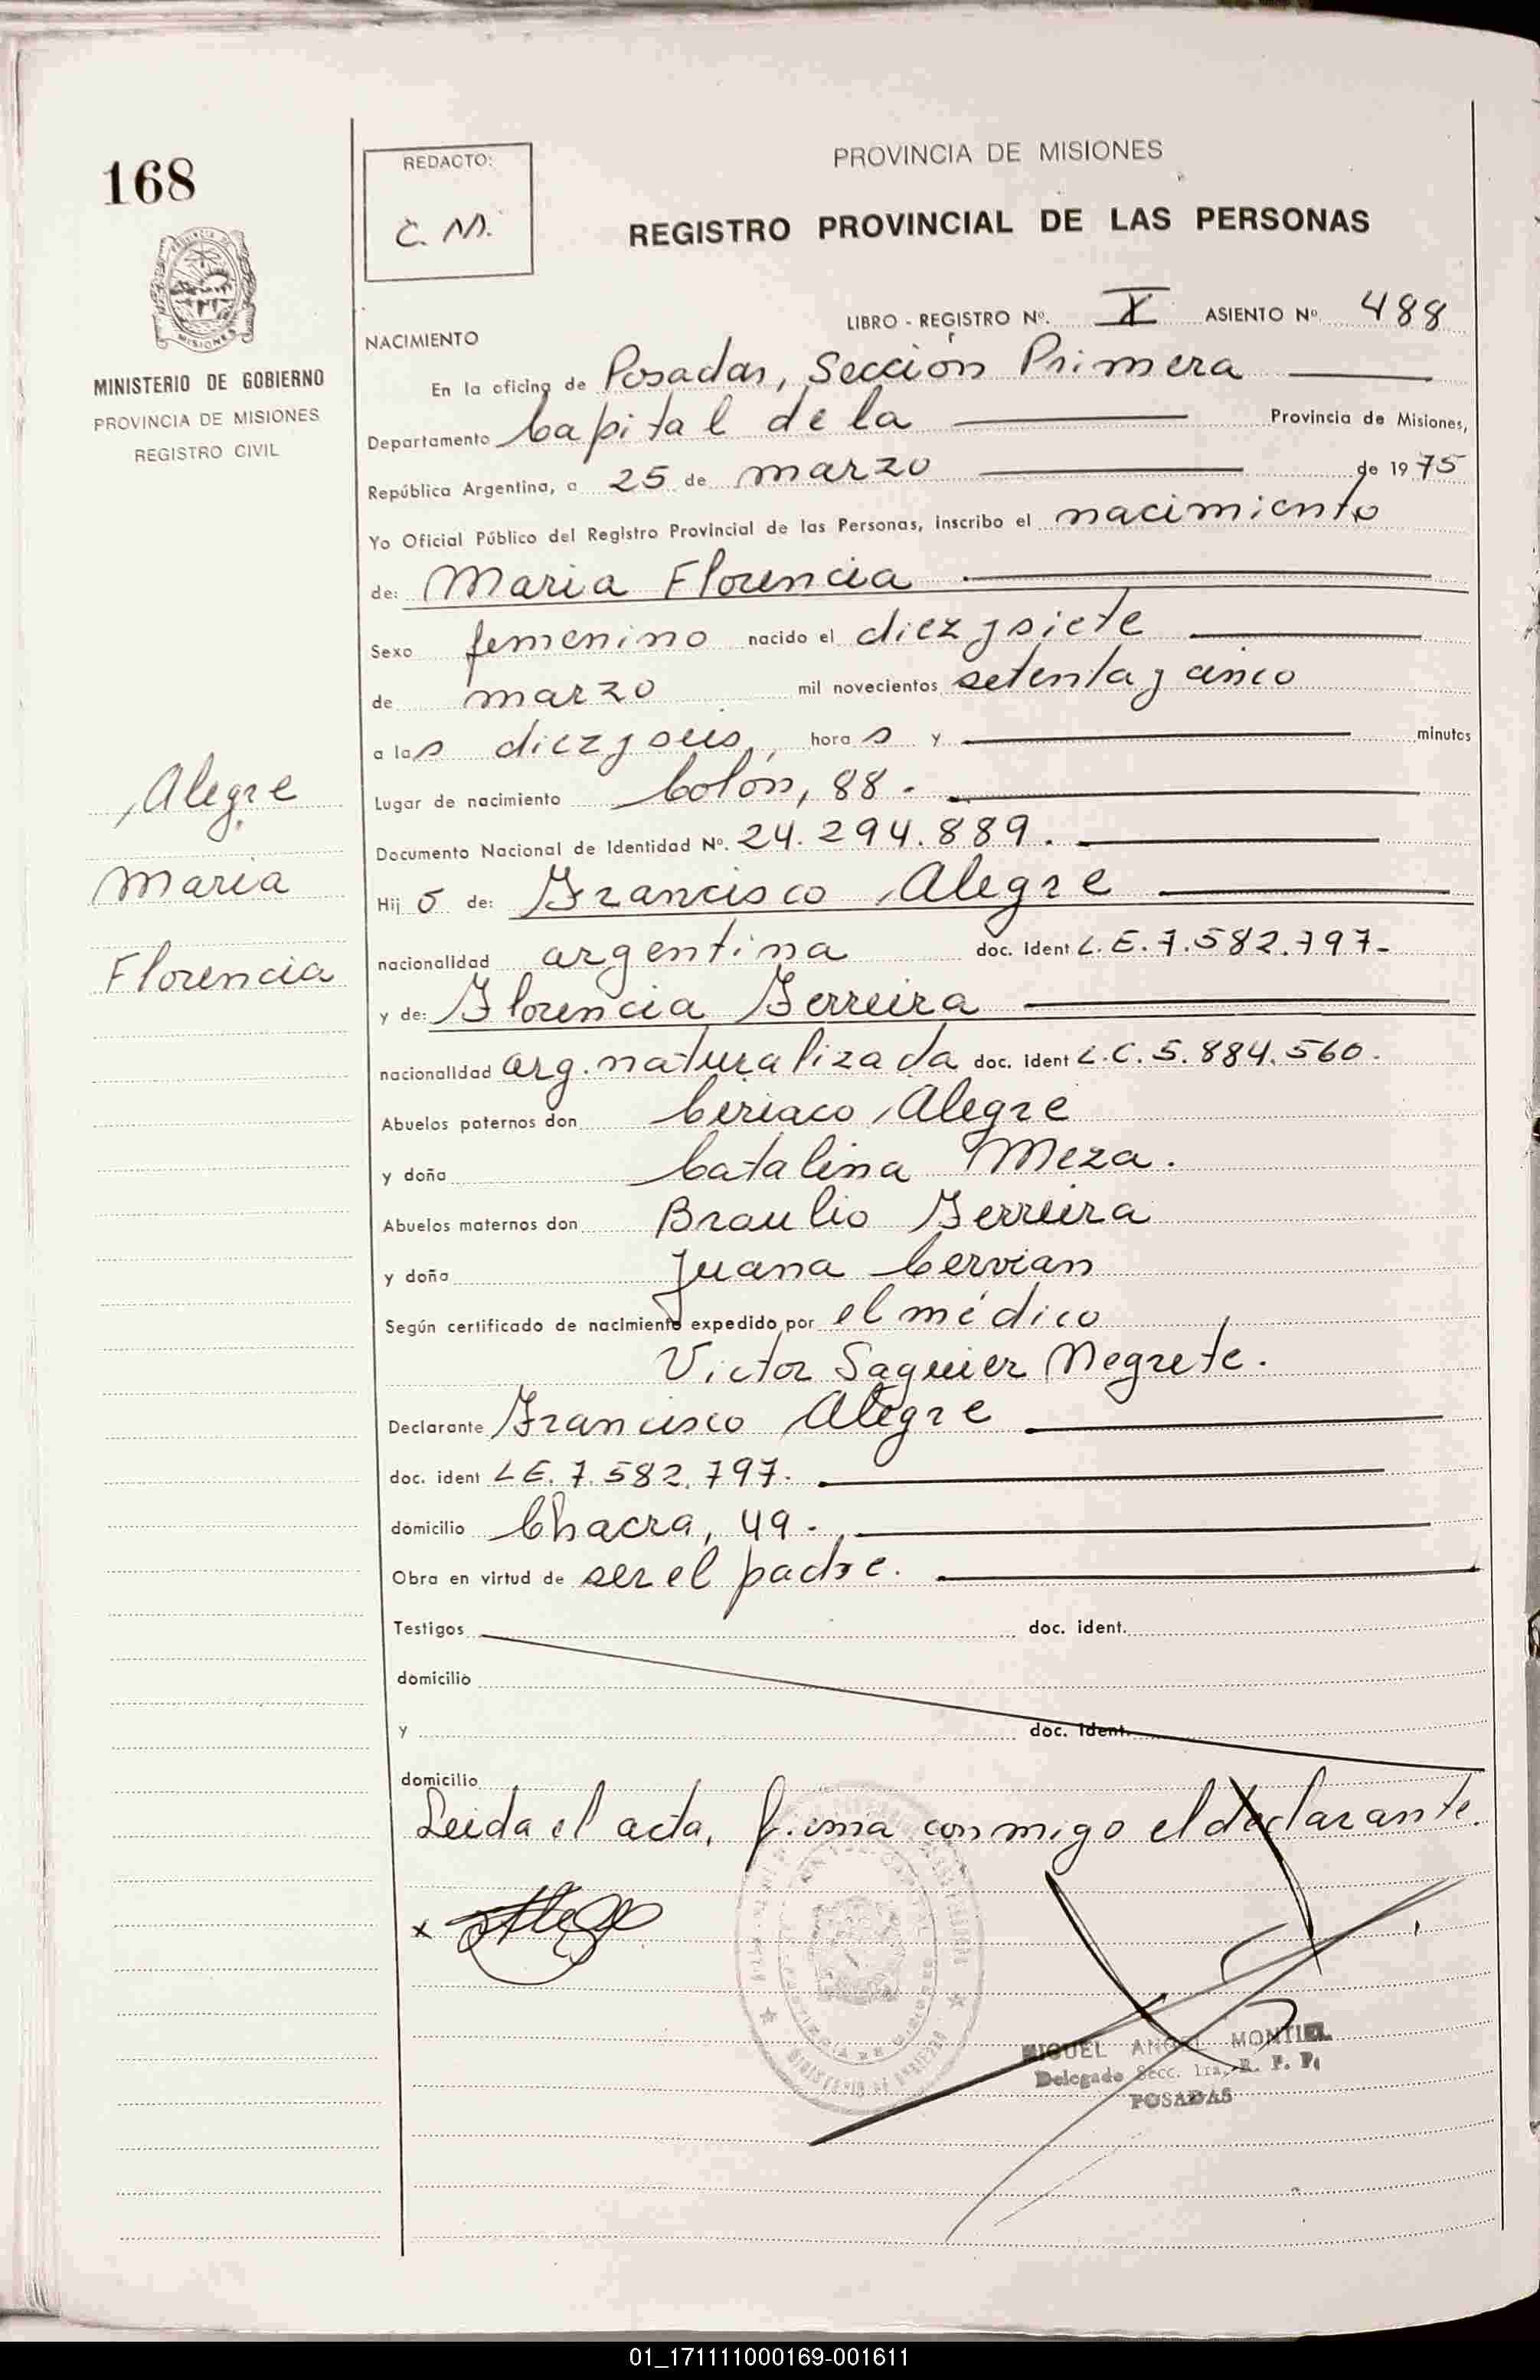 168
REDACTO:
C. M.
PROVINCIA DE MISIONES
REGISTRO PROVINCIAL DE LAS PERSONAS
MINISTERIO DE GOBIERNO
PROVINCIA DE MISIONES
REGISTRO CIVIL
LIBRO - REGISTRO Nº. I ASIENTO Nº 488
NACIMIENTO
En la oficina de Posadas, Sección Primera
Departamento Capital de la Provincia de Misiones,
República Argentina, a 25 de marzo de 1975
Yo Oficial Público del Registro Provincial de las Personas, inscribo el nacimiento
de: Maria Florencia
Sexo femenino nacido el diez y siete
de marzo mil novecientos setenta y cinco
a las diez y seis, hora s y minutos
Alegre
Maria
Florencia
Lugar de nacimiento Colón, 88.
Documento Nacional de Identidad Nº. 24.294.889.
Hij o de: Francisco Alegre
nacionalidad argentina doc. ident L.E. 7.582.797-
y de: Florencia Ferreira
nacionalidad arg. naturalizada doc. ident L.C. 5.884.560.
Abuelos paternos don Ciriaco Alegre
y doña Catalina Meza.
Abuelos maternos don Braulio Ferreira
y doña Juana Cervian
Según certificado de nacimiento expedido por el médico
Victor Saguier Negrete.
Declarante Francisco Alegre
doc. ident L E. 7.582.797.
domicilio Chacra, 49.
Obra en virtud de ser el padre.
Testigos doc. ident.
domicilio
y doc. ident.
domicilio
Leida el acta, firma conmigo el declarante.
x
MIGUEL ANGEL MONTIEL
Delegado Secc. 1ra. R. P. P.
POSADAS
01_171111000169-001611